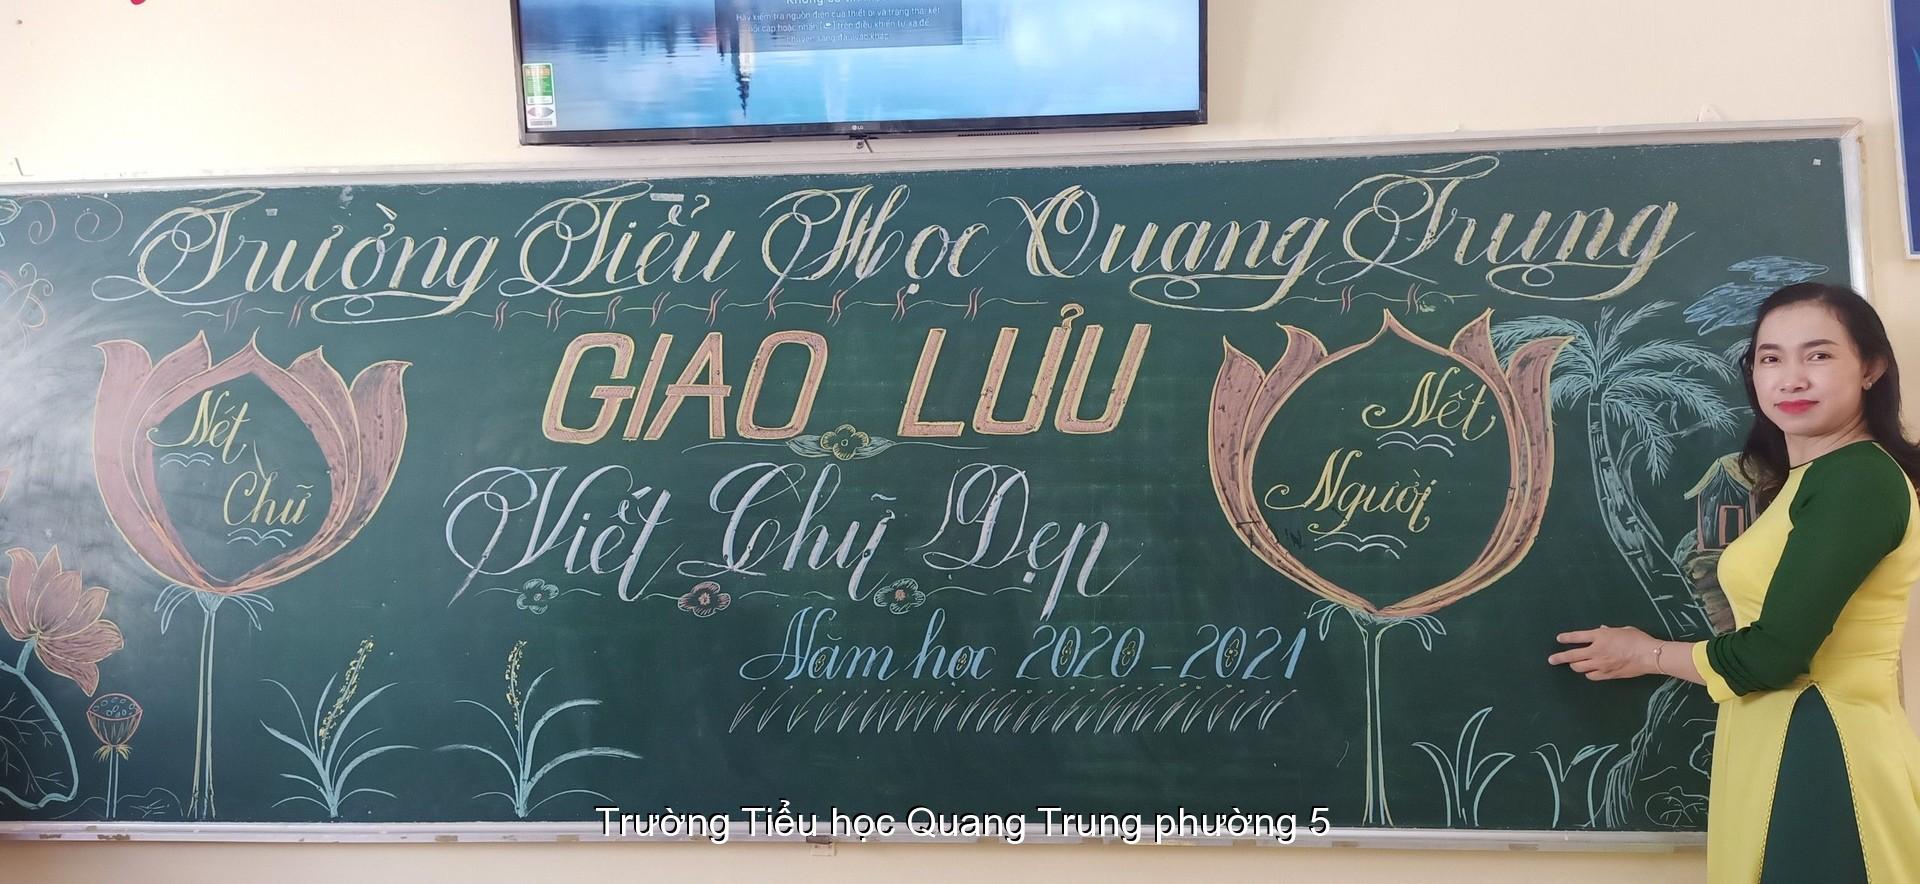 Hãy kiểm tra nguồn điện của thiết bị và trạng thái kết
nối cáp hoặc nhấn [ ] trên điều khiển từ xa để
chuyển sang đầu vào khác.
LG
Trường Tiểu Học Quang Trung
GIAO LƯU
Nét
Chữ
Nết
Người
Viết Chữ Đẹp
Năm học 2020-2021
Trường Tiểu học Quang Trung phường 5